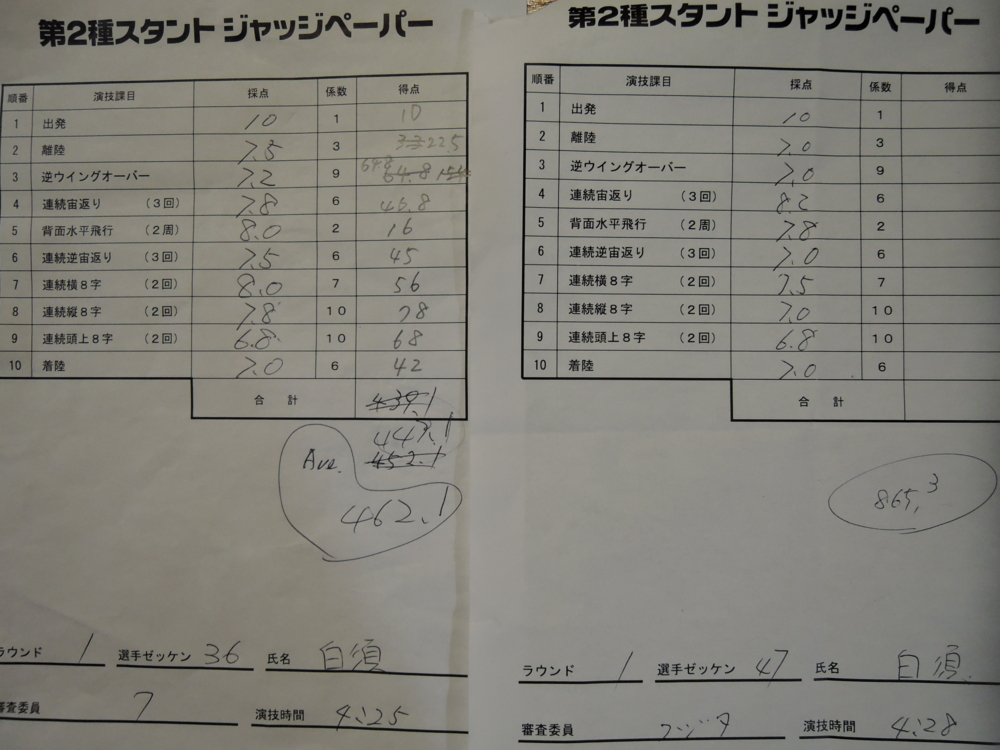 第2種スタント ジャッジペーパー
順番 演技課目 採点 係数 得点
1 出発 10 1 10
2 離陸 7.5 3 22.5
3 逆ウイングオーバー 7.2 9 64.8 64.8
4 連続宙返り (3回) 7.8 6 46.8
5 背面水平飛行 (2周) 8.0 2 16
6 連続逆宙返り (3回) 7.5 6 45
7 連続横8字 (2回) 8.0 7 56
8 連続縦8字 (2回) 7.8 10 78
9 連続頭上8字 (2回) 6.8 10 68
10 着陸 7.0 6 42
合計 439.1
449.1
452.1
Ave.
462.1
ラウンド 1 選手ゼッケン 36 氏名 白須
審査委員 7 演技時間 4:25
第2種スタント ジャッジペーパー
順番 演技課目 採点 係数 得点
1 出発 10 1
2 離陸 7.0 3
3 逆ウイングオーバー 7.0 9
4 連続宙返り (3回) 8.2 6
5 背面水平飛行 (2周) 7.8 2
6 連続逆宙返り (3回) 7.0 6
7 連続横8字 (2回) 7.5 7
8 連続縦8字 (2回) 7.0 10
9 連続頭上8字 (2回) 6.8 10
10 着陸 7.0 6
合計
865.3
ラウンド 1 選手ゼッケン 47 氏名 白須
審査委員 フジタ 演技時間 4:28